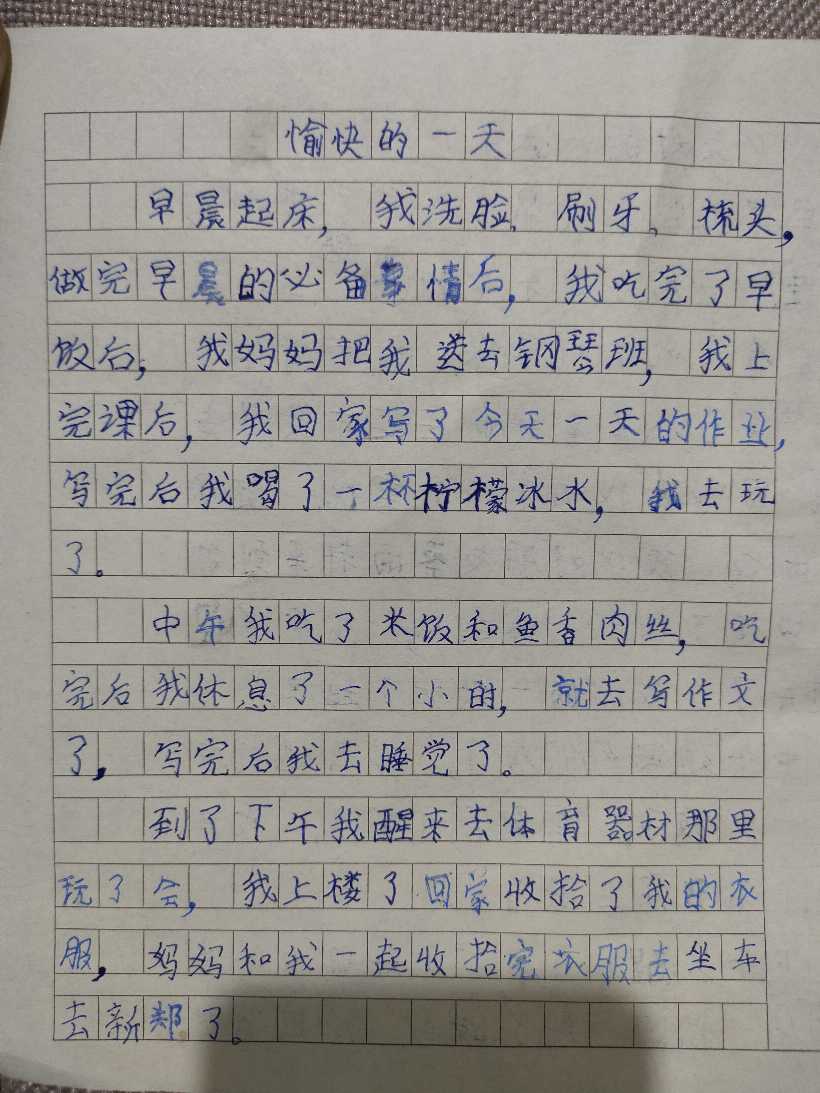 愉快的一天
早晨起床，我洗脸、刷牙、梳头，
做完早晨的必备事情后，我吃完了早
饭后，我妈妈把我送去钢琴班，我上
完课后，我回家写了今天一天的作业，
写完后我喝了一杯柠檬冰水，我去玩
了。
中午我吃了米饭和鱼香肉丝，吃
完后我休息了一个小时，就去写作文
了，写完后我去睡觉了。
到了下午我醒来去体育器材那里
玩了会，我上楼了回家收拾了我的衣
服，妈妈和我一起收拾完衣服去坐车
去新郑了。